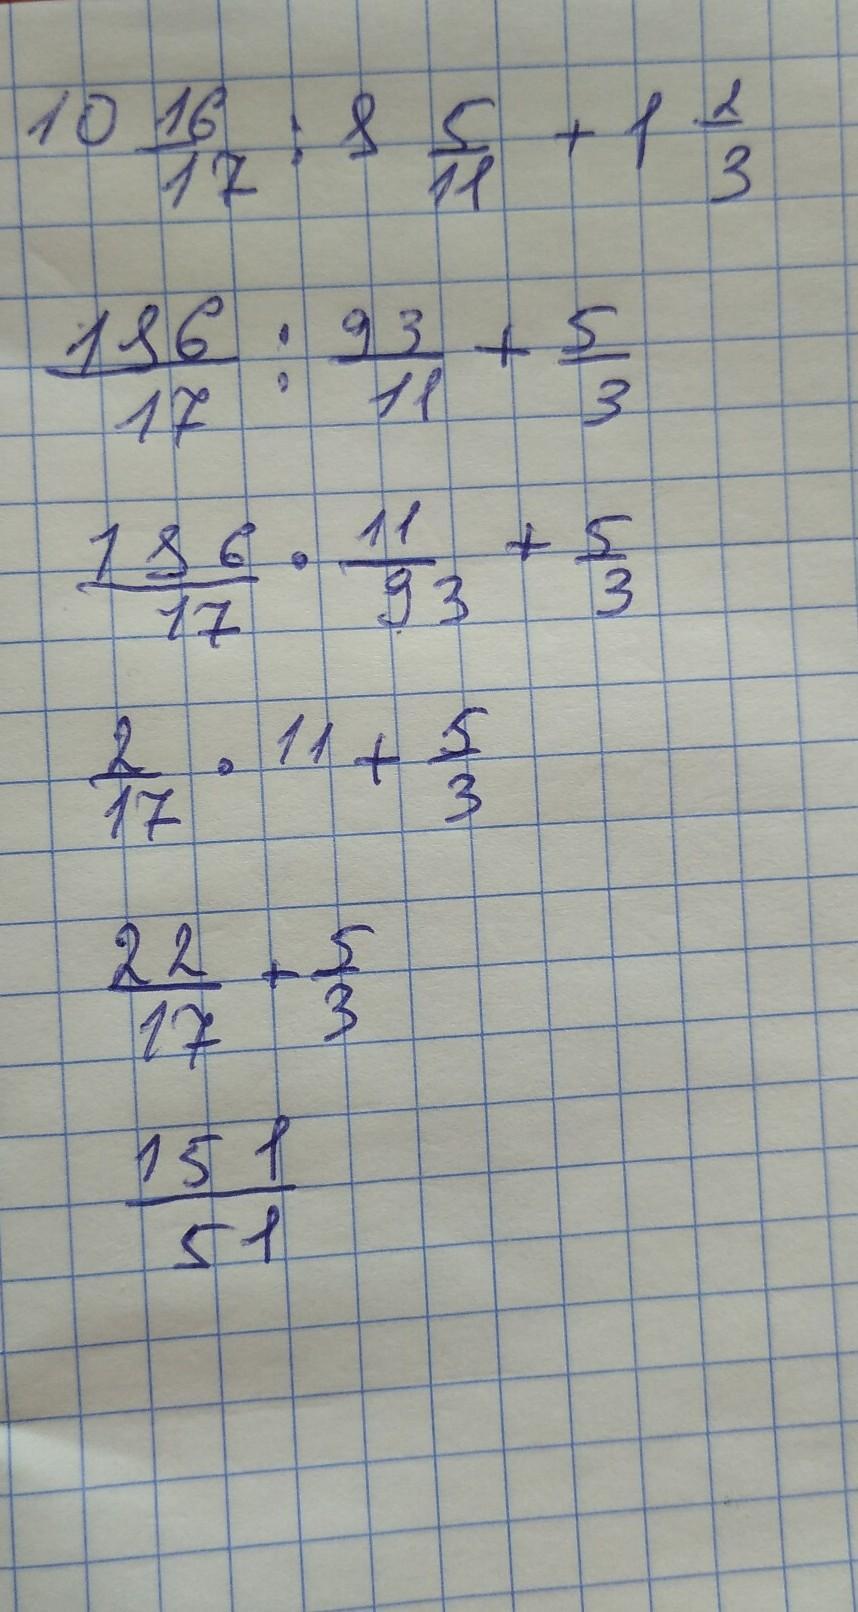 10 16/17 : 8 5/11 + 1 2/3
186/17 : 93/11 + 5/3
186/17 · 11/93 + 5/3
2/17 · 11 + 5/3
22/17 + 5/3
151/51